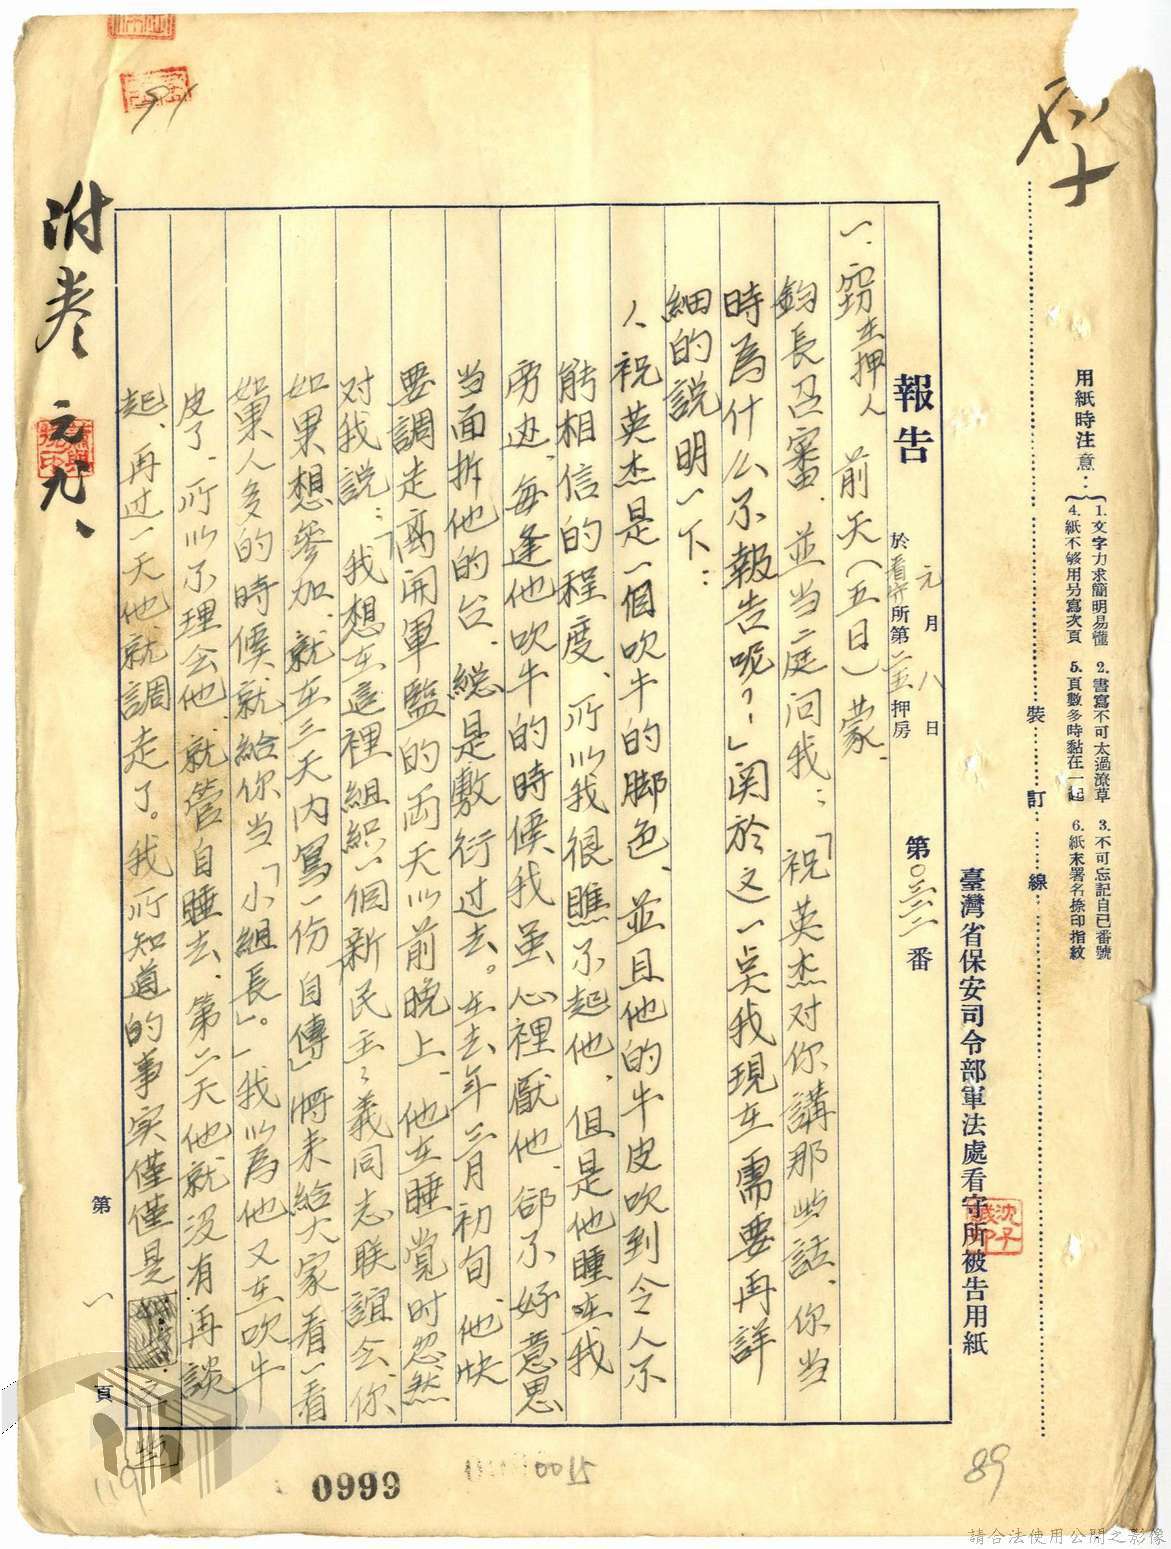 用紙時注意：
1.文字力求簡明易懂 2.書寫不可太過潦草 3.不可忘記自己番號
4.紙不够用另寫次頁 5.頁數多時黏在一起 6.紙末署名捺印指紋
裝 訂 線
臺灣省保安司令部軍法處看守所被告用紙
報告 元月八日 第 番
於看守所第 押房
一、竊在押人 前天(五日)蒙
鈞長召審、並当庭问我：「祝英杰对你講那些話、你当
時為什么不報告呢？」関於这一点我現在需要再詳
細的說明一下：
人、祝英杰是一個吹牛的脚色、並且他的牛皮吹到令人不
能相信的程度、所以我很瞧不起他、但是他睡在我
旁边、每逢他吹牛的時候我虽心裡厭他、卻不好意思
当面拆他的台、総是敷衍过去。在去年三月初旬、他快
要調走离開軍監的両天以前晚上、他在睡覚时忽然
对我說：「我想在這裡組織一個新民主主義同志联誼会、你
如果想参加、就在三天内寫一份自傳、将来給大家看一看
如果人多的時候就給你当「小組長」。」我以為他又在吹牛
皮了、所以不理会他、就管自睡去、第二天他就没有再談
起、再过一天他就調走了。我所知道的事実僅僅是
第一頁
附卷 元九、
沈子誠印
0999
0015
89
119
91
請合法使用公開之影像